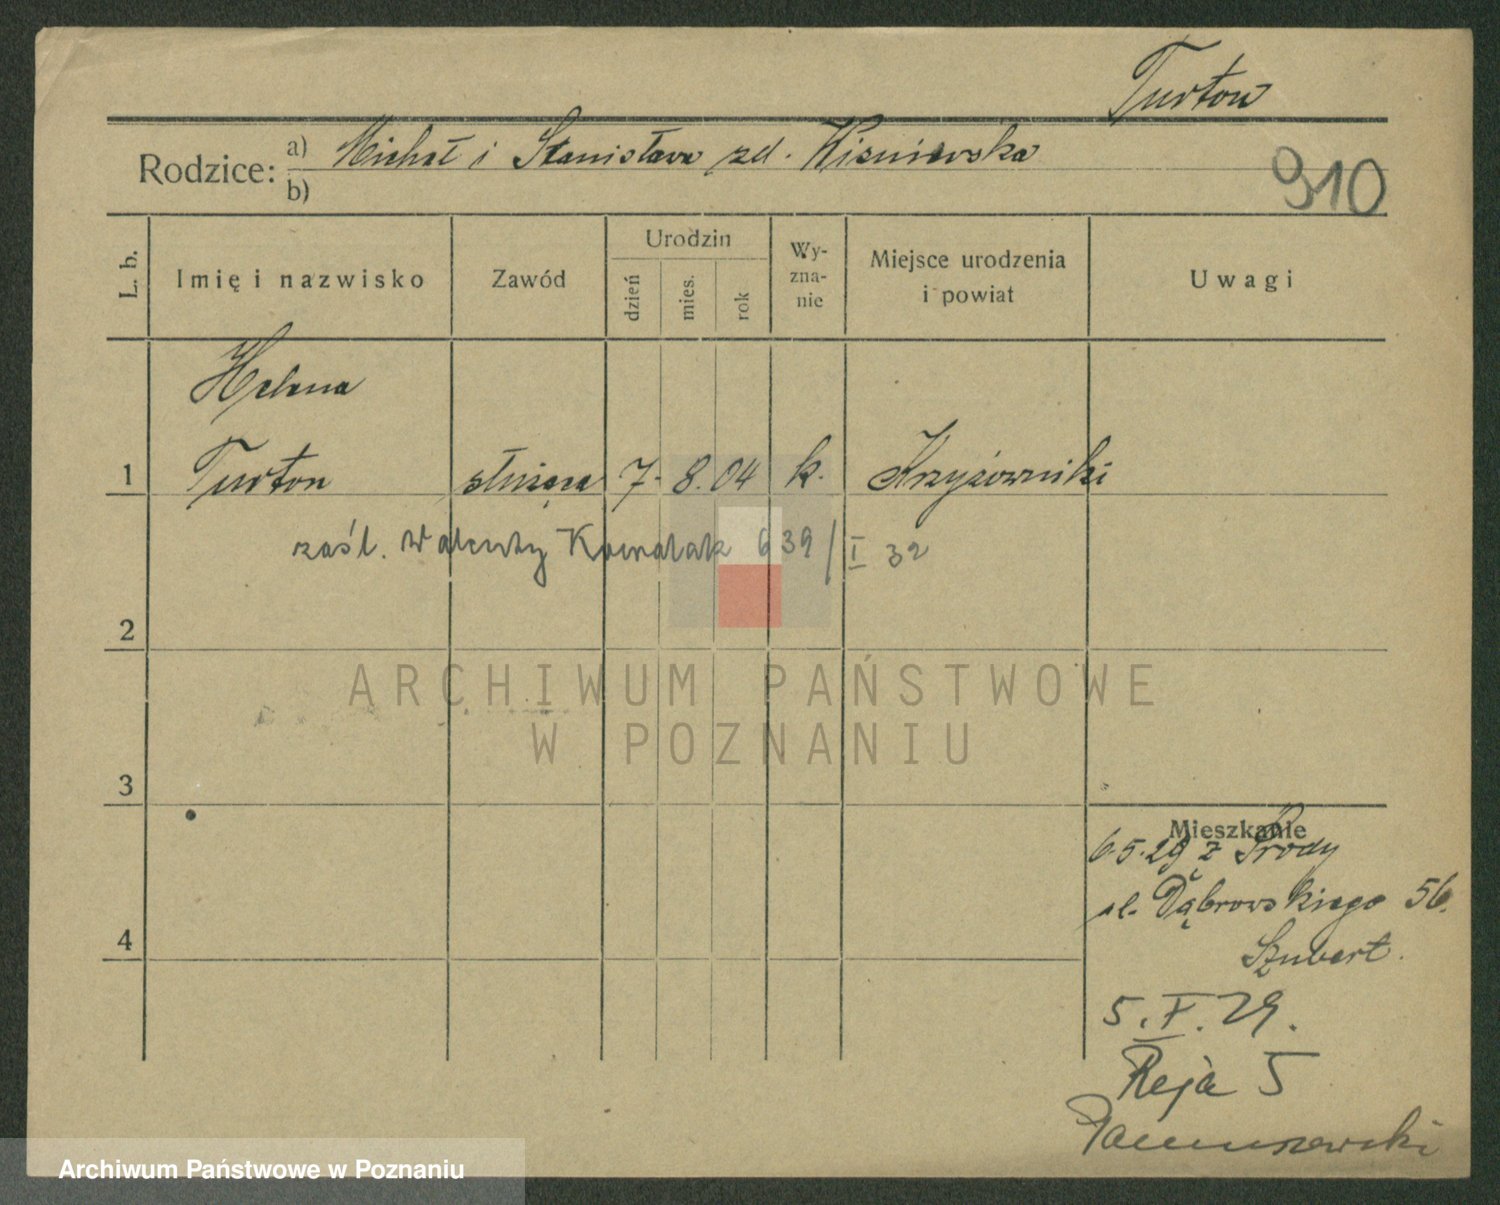 Turton
Rodzice: a) Michał i Stanisława zd. Wisniewska
b)
910
L. b.
Imię i nazwisko
Zawód
Urodzin
dzień
mies.
rok
Wy-
zna-
nie
Miejsce urodzenia
i powiat
Uwagi
Helena
1 Turton służąca 7. 8. 04 k. Krzyżowniki
zaśl. Walenty Kowalak 639/I 32
2
3
4
Mieszkanie
6.5.29 z Środy
ul. Dąbrowskiego 56.
Szubert.
5.V.29.
Reja 5
ARCHIWUM PAŃSTWOWE
W POZNANIU
Archiwum Państwowe w Poznaniu